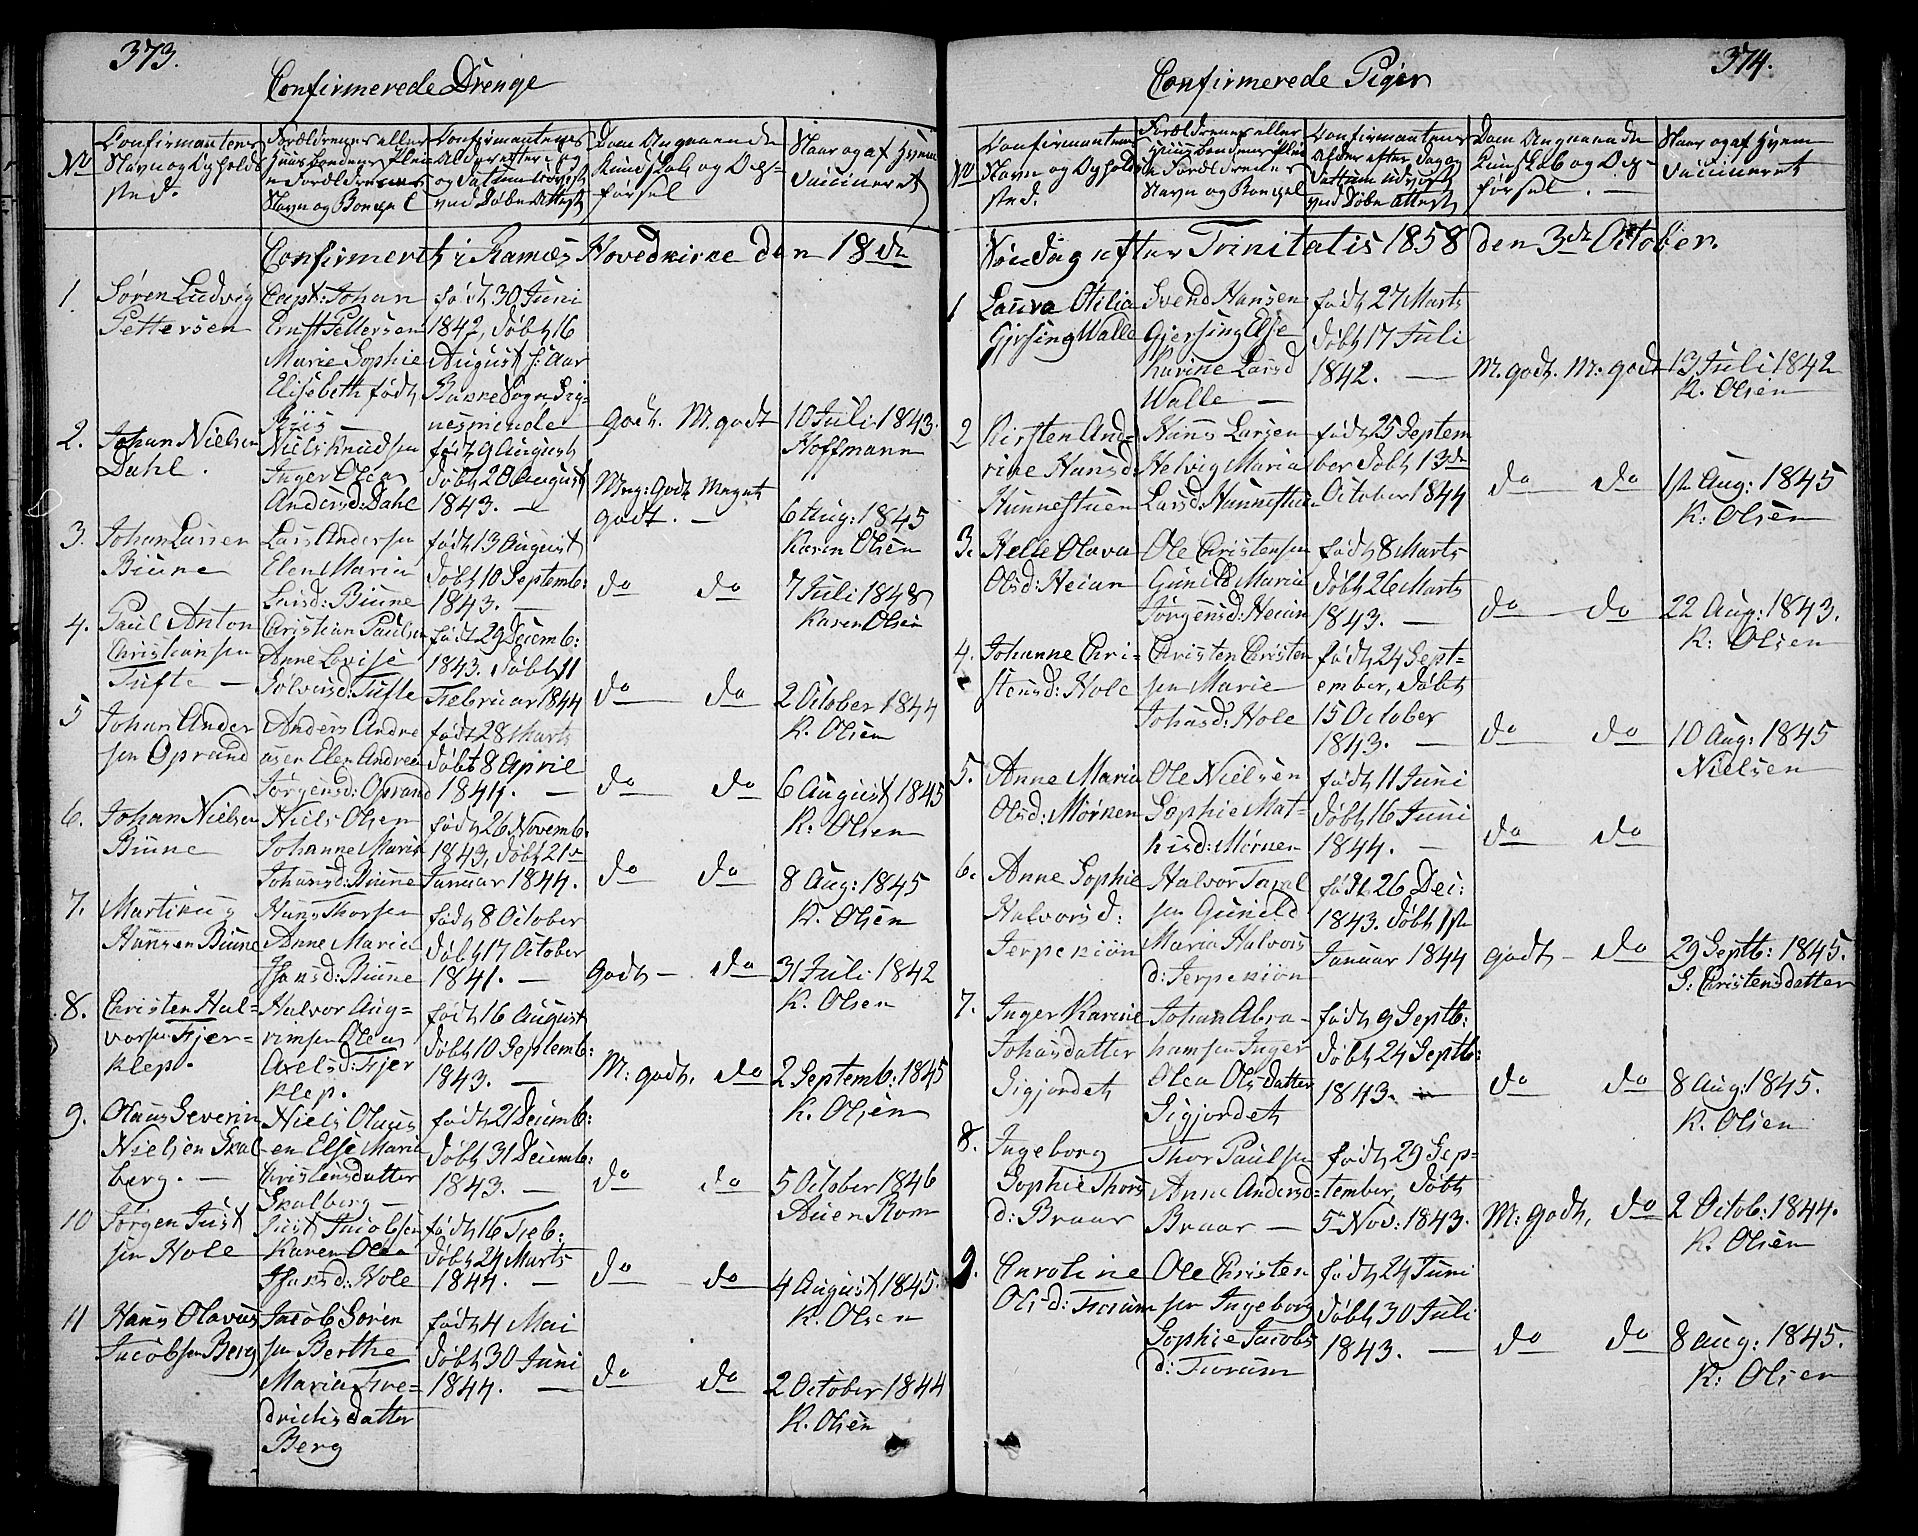 373.
Confirmerede Drenge
No
Confirmantens
Navn og Opholds
sted.
Forældrenes eller
Navn og Bopæl
Confirmantens
Alder efter
ved Døbe Attest
Dom Angaaende
Kundskab og Op-
førsel
Naar og af hvem
vaccineret
Confirmert i Ramnes Hovedkirke den 18de
1.
Søren Ludvig
Pettersen
Capt: Johan
Ernst Pettersen
Marie Sophie
Elisebeth født
Riis —
født 30 Juni
1842, døbt 16
August s: Aar
godt. M. godt
10 Juli 1843.
Hoffmann
2.
Johan Nielsen
Dahl.
Niels Knudsen
Inger Olea
Andersd: Dahl
født 9 August
døbt 20 August
1843. —
Meg: Godt Meget
godt. —
6 Aug: 1845
Karen Olsen
3.
Johan Larsen
Biune
Lars Andersen
Elen Maria
Larsd: Biune
født 13 August
døbt 10 Septemb:
1843. —
do do
7 Juli 1848
Karen Olsen
4.
Paul Anton
Christiansen
Tufte —
Christian Paulsen
Anne Lovise
Solvesd: Tufte
født 29 Decemb:
1843. døbt 11
Februar 1844
do do
2 October 1844
K. Olsen
5
Johan Ander
sen Oprand
Anders Andre
asen Elen Andrea
Jørgensd: Oprand
født 28 Marts
døbt 8 April
1844. —
do do
6 August 1845
K. Olsen
6.
Johan Nielsen
Biune
Niels Olsen
Johanne Maria
Johansd: Biune
født 26 Novemb:
1843, døbt 21de
Januar 1844.
do do
8 Aug: 1845
K. Olsen
7.
Martinus
Hansen Biune
Hans Thorsen
Anne Maria
Hansd: Biune
født 8 October
døbt 17 October
1841. —
godt — do
31 Juli 1842
K. Olsen
8.
Christen Hal-
vorsen Fjer-
klep.
Halvor Ang-
rimsen Olea
Axelsd: Fjer
klep.
født 16 August
døbt 10 Septemb:
1843. —
M: godt, do
2 Septemb: 1845
K. Olsen
9.
Olaus Severin
Nielsen Skal
berg. —
Niels Olaus
en Else Maria
Christensdatter
Skalberg —
født 21 Decemb:
døbt 31 Decemb:
1843. —
do do
5 October 1846
Auen Rom
10
Jørgen Just
sen Hole
Just Jacobsen
Karen Olea
Hansd: Hole
født 16 Feb:
døbt 24 Marts
1844. —
do do
4 August 1845.
K. Olsen
11
Hans Olavus
Jacobsen Berg
Jacob Søren
sen Berthe
Maria Fre-
drichsdatter
Berg
født 4 Mai
døbt 30 Juni
1844. —
do do
2 October 1844
K. Olsen
374.
Confirmerede Piger
No
Confirmantens
Navn og Opholds
sted.
Forældrenes eller
Navn og Bopæl
Confirmantens
Alder efter Dag og
Dattum udvist
ved Døbe Attest
Dom Angaaende
Kundskab og Op-
førsel. —
Naar og af hvem
vaccineret
Søndag efter Trinitatis 1858 den 3de October.
1
Laura Otilia
Gjersing Walle
Svend Hansen
Gjersing Else
Karine Larsd
Walle —
født 27 Marts
døbt 17 Juli
1842. —
M. godt. M: godt
13 Juli 1842
K. Olsen
2
Kirsten And-
rine Hansd:
Hunnestuen
Hans Larsen
Helvig Maria
Larsd: Hunnestue
født 25 Septem
ber døbt 13de
October 1844
do do
1st Aug: 1845
K: Olsen
3.
Helle Olava
Olsd: Heian
Ole Christensen
Gunild Maria
Jørgensd: Heian
født 8 Marts
døbt 26 Marts
1843. —
do do
22 Aug: 1843.
K: Olsen
4.
Johanne Chri-
stensd: Hole
Christen Christen
sen Marie
Johasd: Hole
født 24 Sept-
ember, døbt
15 October
1843. —
do do
10 Aug: 1845
Nielsen
5.
Anne Maria
Olsd: Mørken
Ole Nielsen
Sophie Mat-
hisd: Mørken
født 11 Juni
døbt 16 Juni
1844. —
do do
6.
Anne Sophie
Halvorsd:
Jerpekiøn
Halvor Taral
sen Gunild
Maria Halvors
d: Jerpekiøn
født 26 Dec:
1843. døbt 1ste
Januar 1844
godt — do
29 Septb: 1845.
G: Christensdatter
7.
Inger Karine
Johasdatter
Sigjordet
Johan Abra-
hamsen Inger
Olea Olsdatter
Sigjordet
født 9 Septb:
døbt 24 Septb:
1843. —
do do
8 Aug: 1845.
K. Olsen
8.
Ingeborg
Sophie Thors
d: Braar
Thor Paulsen
Anne Andersd
Braar —
født 29 Sep-
tember, døbt
5te Nov: 1843.
M: godt, do
2 Octob: 1844.
K. Olsen
9.
Caroline
Olsd: Fiorum
Ole Christen
sen Ingeborg
Sophie Jacobs
d: Fiorum
født 24 Juni
døbt 30 Juli
1843. —
do do
8 Aug: 1845.
K: Olsen